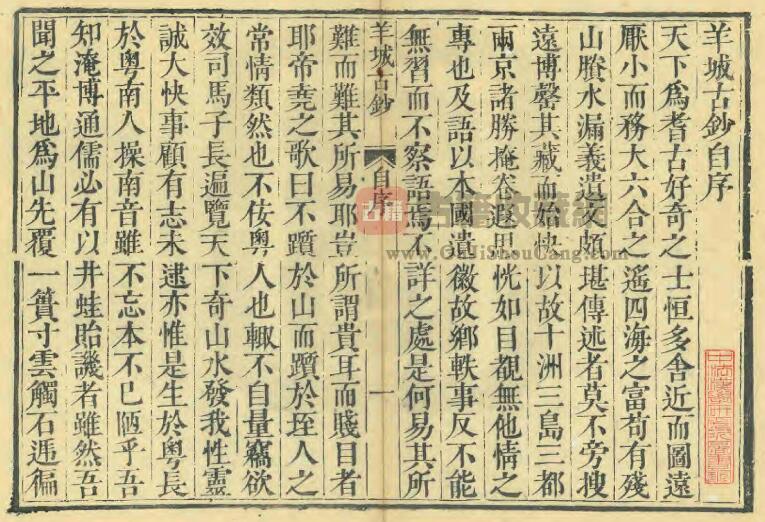 羊城古鈔自序
天下爲耆古好奇之士恒多舍近而圖遠
厭小而務大六合之遙四海之富苟有殘
山賸水漏義遺文頗堪傳述者莫不旁搜
遠博罄其藏而始快以故十洲三島三都
兩京諸勝掩卷遐思恍如目覩無他情之
專也及語以本國遺徽故鄉軼事反不能
無習而不察語焉不詳之處是何易其所
羊城古鈔 自序 一
難而難其所易耶豈所謂貴耳而賤目者
耶帝堯之歌曰不躓於山而躓於垤人之
常情類然也不佞粵人也輙不自量竊欲
效司馬子長遍覽天下奇山水發我性靈
誠大快事顧有志未逮亦惟是生於粵長
於粵南人操南音雖不忘本不已陋乎吾
知淹博通儒必有以井蛙貽譏者雖然吾
聞之平地爲山先覆一簣寸雲觸石遞徧
古籍
古籍收藏网
www.GuJiShouCang.com